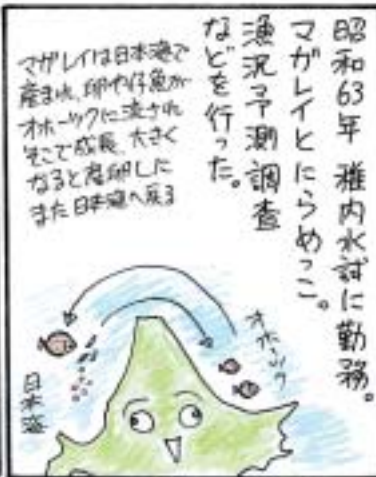 昭和63年 稚内水試に勤務。
マガレイとにらめっこ。
漁況予測調査
などを行った。
マガレイは日本海で
産まれ、卵や仔魚が
オホーツクに流され
そこで成長、大きく
なると産卵しに
また日本海へ戻る
オホーツク
日本海